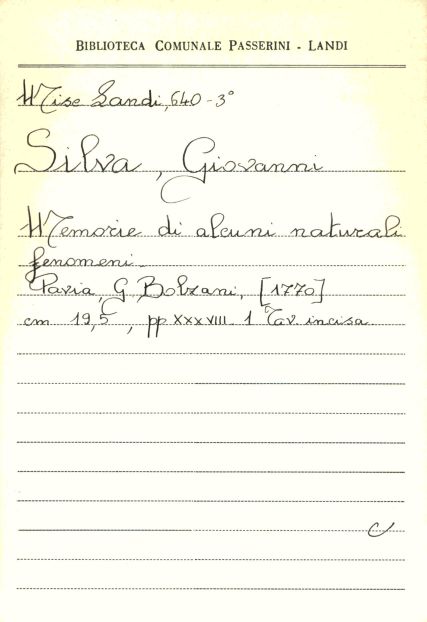 BIBLIOTECA COMUNALE PASSERINI - LANDI
Misc Landi, 640 - 3°
Silva, Giovanni
Memorie di alcuni naturali
fenomeni.
Pavia, G Bolzani, [1770]
cm 19,5, pp XXXVIII. 1 Tav. incisa
C